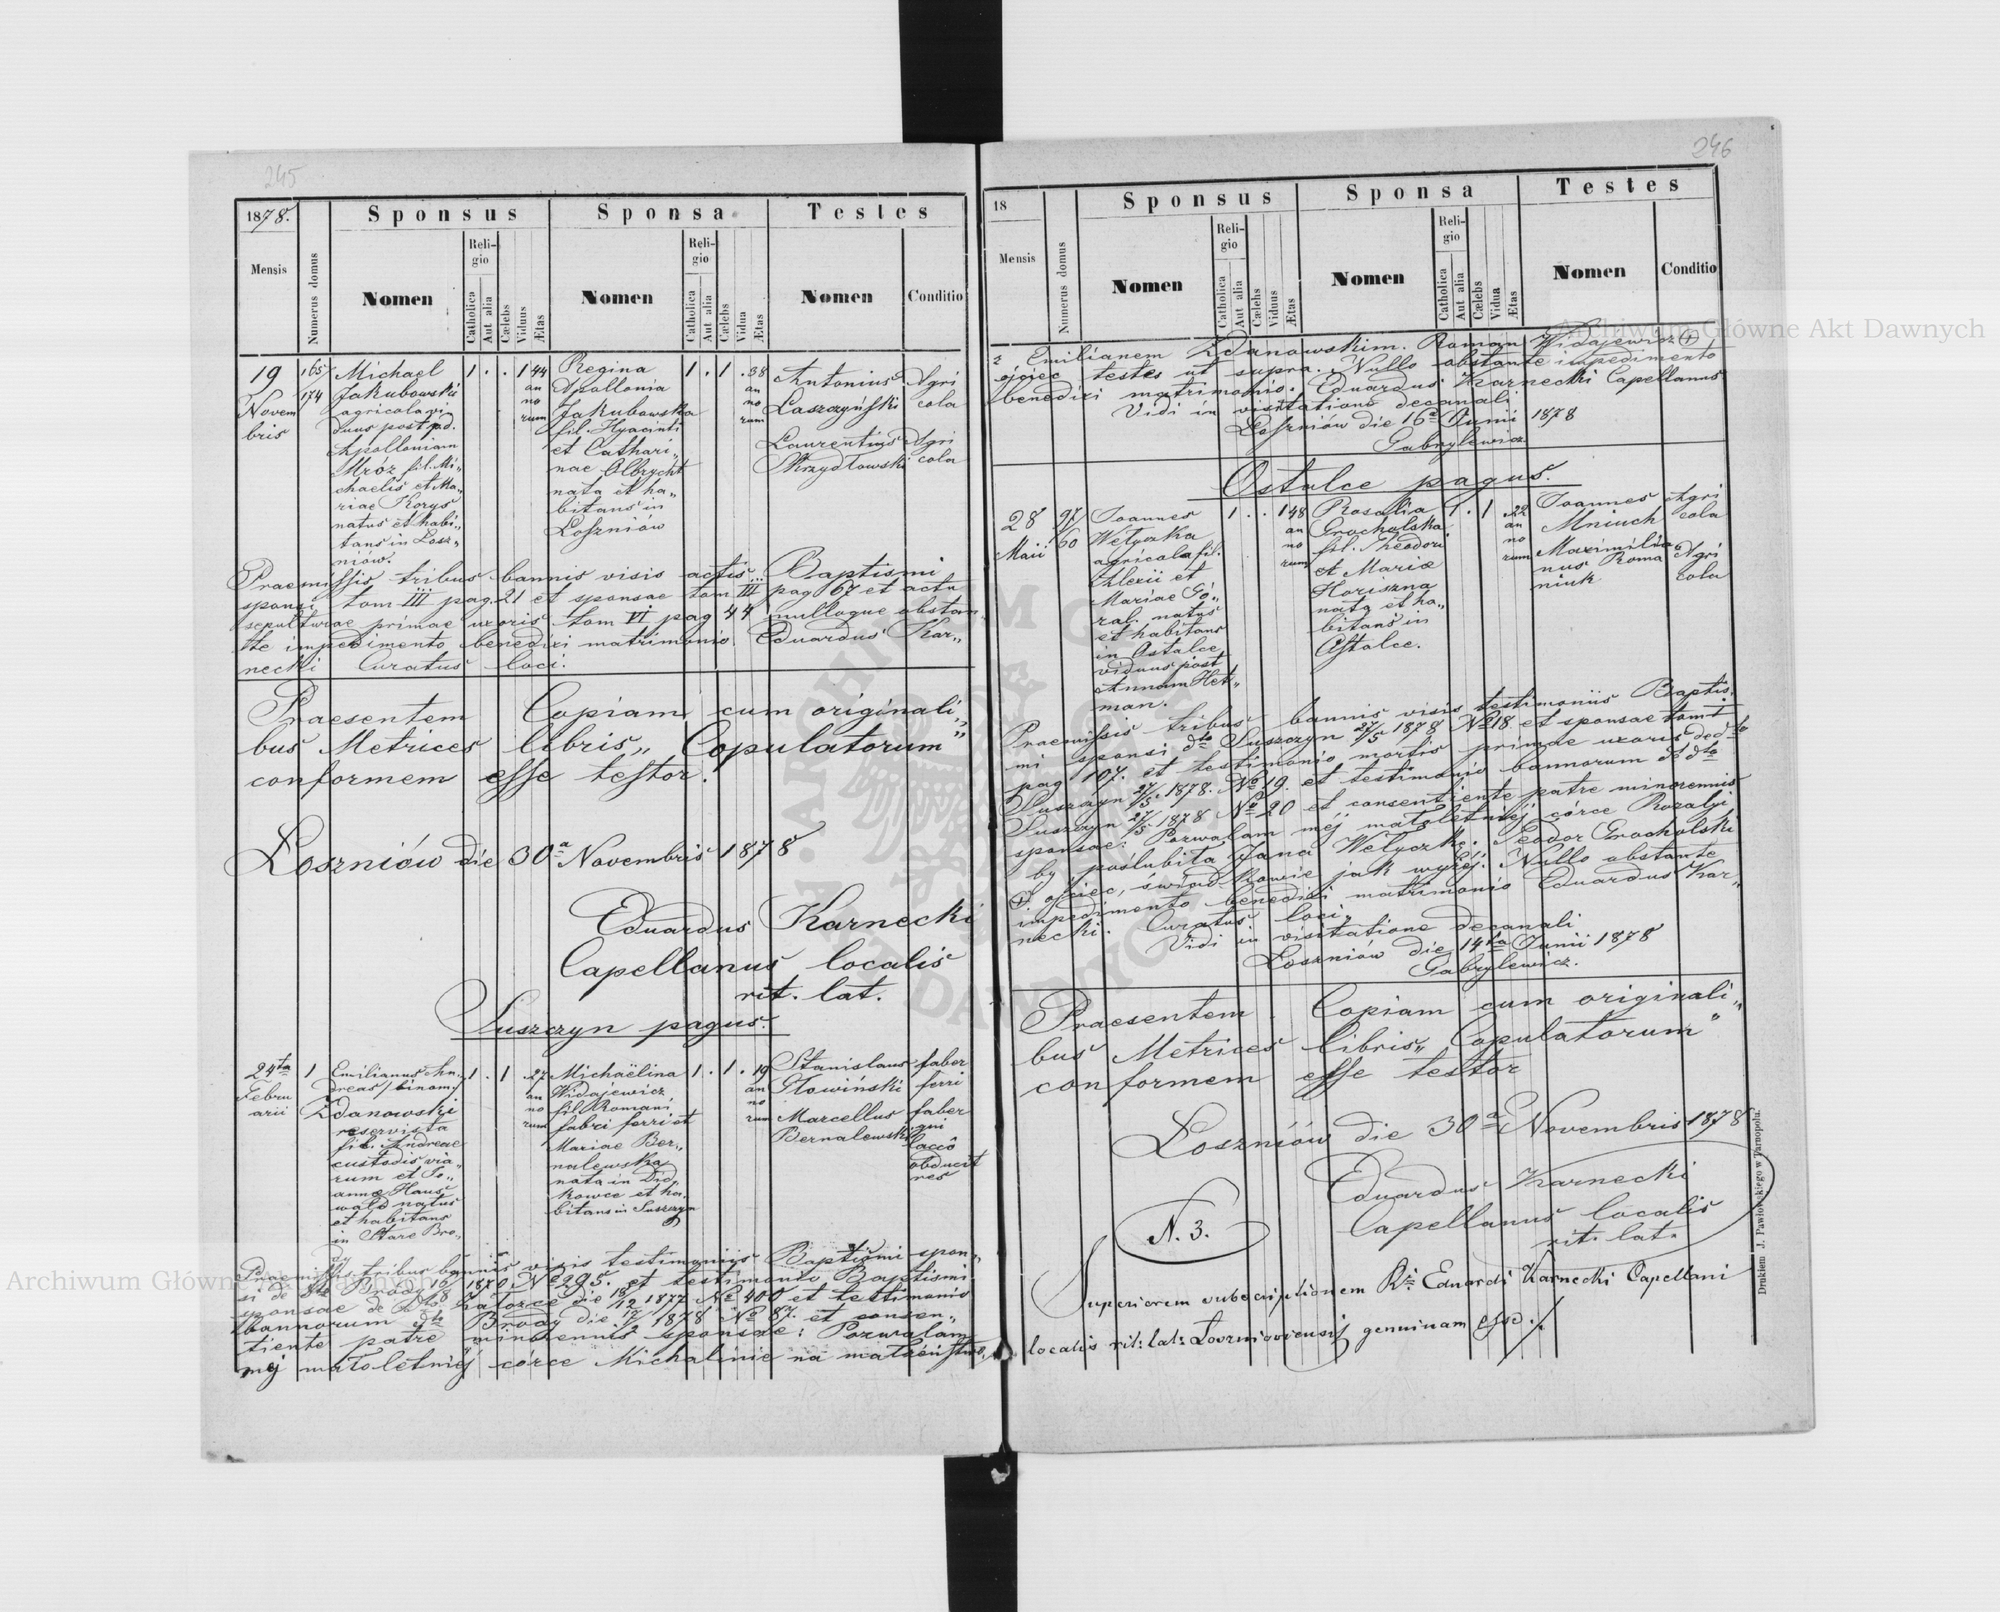 245
1878.
Sponsus Sponsa Testes
Mensis
Numerus domus
Nomen
Religio
Catholica
Aut alia
Cælebs
Viduus
Ætas
Nomen
Religio
Catholica
Aut alia
Cælebs
Vidua
Ætas
Nomen
Conditio
19
Novem
bris
165
174
Michael
Jakubowski
agricola vi
duus post ad.
Apolloniam
Mróz fil. Mi„
chaelis et Ma„
riae Korys
natus et habi„
tans in Łosz„
niów.
1 . . 1 44
an
no
rum
Regina
Apollonia
Jakubowska
fil. Hyacinti
et Cathari„
nae Olbrycht
nata et ha„
bitans in
Łoszniów
1 . 1 . 38
an
no
rum
Antonius
Laszczyński
Agri
cola
Laurentius
Skrzydłowski
Agri
cola
Praemissis tribus bannis visis actis Baptismi
sponsi tom III pag. 21 et sponsae tom III pag 67 et actu
sepulturae primae uxoris tom VI pag 44 nulloque obstan„
te impedimento benedixi matrimonio. Eduardus Kar„
necki Curatus loci.
Praesentem Copiam cum originali„
bus Metrices libris„ Copulatorum"
conformem esse testor.
Łoszniów die 30a Novembris 1878
Eduardus Karnecki
Capellanus localis
rit. lat.
Suszczyn pagus.
24ta
Febru
arii
1
Emilianus An„
dreas /binomy
Zdanowski
reservista
fil. Andreae
custodis via„
rum et Jo„
annae Haus
wald natus
et habitans
in Stare Bro„
dy
1 . 1 . 27
an
no
rum
Michaëlina
Widajewicz,
fil. Romani
fabri ferri et
Mariae Ber„
nalewska
nata in Did„
kowce et ha„
bitans in Suszczyn
1 . 1 . 19
an
no
rum
Stanislaus
Głowiński
faber
ferri
Marcellus
Bernalewski
faber
qui
laccô
obducit
res
Praemissis tribus bannis visis testimoniis Baptismi spon„
si de dto Brody 16/8 1870 No 295. et testimonio Baptismi
sponsae de dto Załoźce die 18/12 1877 No 400 et testimonio
bannorum dto Brody die 17/2 1878 No 87. et consen„
tiente patre minorennis sponsae: Pozwalam
mej małoletniéj córce Michalinie na małżeństwo
246
18
Sponsus Sponsa Testes
Mensis
Numerus domus
Nomen
Religio
Catholica
Aut alia
Cælebs
Viduus
Ætas
Nomen
Religio
Catholica
Aut alia
Cælebs
Vidua
Ætas
Nomen
Conditio
z Emilianem Zdanowskim. Roman Widajewicz +
ojciec testes ut supra. Nullo obstante impedimento
benedixi matrimonio. Eduardus Karnecki Capellanus
Vidi in visitatione decanali
Łoszniów die 16a Junii 1878
Gabrylewicz
Ostalce pagus.
28
Maii
97
60
Joannes
Wełyczka
agricola fil.
Alexii et
Mariae Gó„
ral. natus
et habitans
in Ostalce
viduus post
Annam Het„
man.
1 . . 1 48
an
no
rum
Rosalia
Grocholska
fil. Theodori
et Mariæ
Horiszna
nata et ha„
bitans in
Ostalce.
1 . 1 . 22
an
no
rum
Joannes
Mniuch
Agri
cola
Maximilia
nus Roma
niuk
Agri
cola
Praemissis tribus bannis visis testimoniis Baptis„
mi sponsi dto Suszczyn 27/5 1878 No 18 et sponsae tom I
pag 107. et testimonio mortis primae uxoris de dto
Suszczyn 27/5 1878. No 19. et testimonio bannorum de dto
Suszczyn 27/5 1878 No 20 et consentiente patre minorennis
sponsae: Pozwalam méj małoletniéj córce Rozalyi
by poślubiła Jana Wełyczkę. Teodor Grocholski
+ ojciec, świadkowie jak wyżej. Nullo obstante
impedimento benedixi matrimonio Eduardus Kar„
necki. Curatus loci.
Vidi in visitatione decanali
Łoszniów die 14ta Junii 1878
Gabrylewicz.
Praesentem Copiam cum originali„
bus Metrices libris„ Copulatorum"
conformem esse testor
Łoszniów die 30a Novembris 1878
Eduardus Karnecki
Capellanus localis
rit. lat.
N. 3.
Superiorem subscriptionem Rdi Eduardi Karnecki Capellani
localis rit: lat: Łoszniowiensis genuinam esse ./.
Drukiem J. Pawłowskiego w Tarnopolu.
Archiwum Główne Akt Dawnych
Archiwum Główne Akt Dawnych
ARCHIWUM GŁÓWNE AKT DAWNYCH